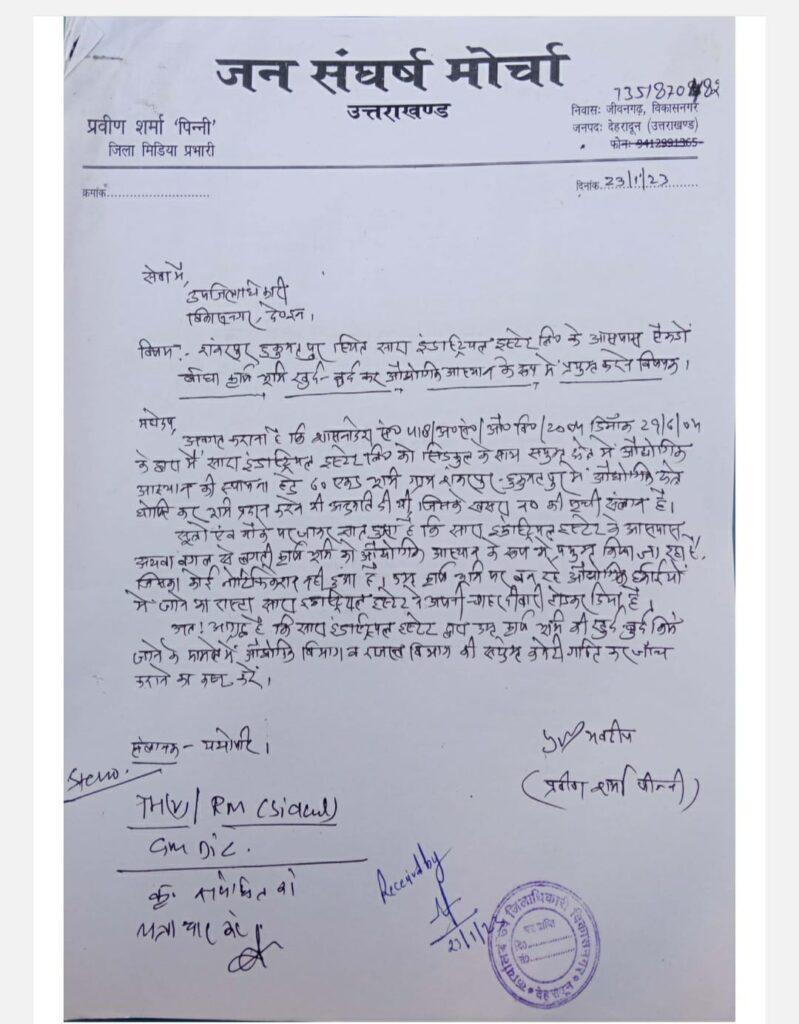 जन संघर्ष मोर्चा
उत्तराखण्ड
7351870882
प्रवीण शर्मा 'पिन्नी'
जिला मिडिया प्रभारी
निवासः जीवनगढ़, विकासनगर
जनपदः देहरादून (उत्तराखण्ड)
फोनः 9412991365
क्रमांक
दिनांक 23/1/23
सेवा में,
उपजिलाधिकारी
विकासनगर, दे०दून।
विषय:- शंकरपुर हुकुमतपुर स्थित सारा इंडस्ट्रियल इस्टेट लि० के आसपास सैकडों
बीघा कृषि भूमि खुर्द-बुर्द कर औद्योगिक आस्थान के रूप में प्रयुक्त करने विषयक।
महोदय,
अवगत कराना है कि शासनादेश सं० औ० वि०/2004 दिनाँक
के द्वारा मैं सारा इंडस्ट्रियल इस्टेट लि० को सिडकुल के साथ संयुक्त क्षेत्र में औद्योगिक
आस्थान की स्थापना हेतु 60 एकड भूमि ग्राम शंकरपुर-हुकुमतपुर में औद्योगिक क्षेत्र
घोषित कर भूमि प्रदान करने की अनुमति दी थी, जिसके खसरा न० की सूची संलग्न है।
सूत्रों एवं मौके पर जाकर ज्ञात हुआ है कि सारा इंडस्ट्रियल इस्टेट के आसपास
अथवा बगल से लगती कृषि भूमि को औद्योगिक आस्थान के रूप में प्रयुक्त किया जा रहा है,
जिसका कोई नोटिफिकेशन नहीं हुआ है। उक्त कृषि भूमि पर बन रहे औद्योगिक ईकाईयों
में जाने का रास्ता सारा इंडस्ट्रियल इस्टेट ने अपनी चाहरदीवारी तोडकर दिया है
अतः आग्रह है कि सारा इंडस्ट्रियल इस्टेट द्वारा उक्त कृषि भूमि को खुर्द-बुर्द किये
जाने के मामले में औद्योगिक विभाग व राजस्व विभाग की संयुक्त कमेटी गठित कर जाँच
कराने का कष्ट करें।
संलग्नक - यथोपरि।
भवदीय
(प्रवीण शर्मा पिन्नी)
Steno.
TH(V)/ RM (Sidcul)
GM DIC.
Received by
23/1/23
कार्यालय उप जिलाधिकारी विकासनगर
देहरादून